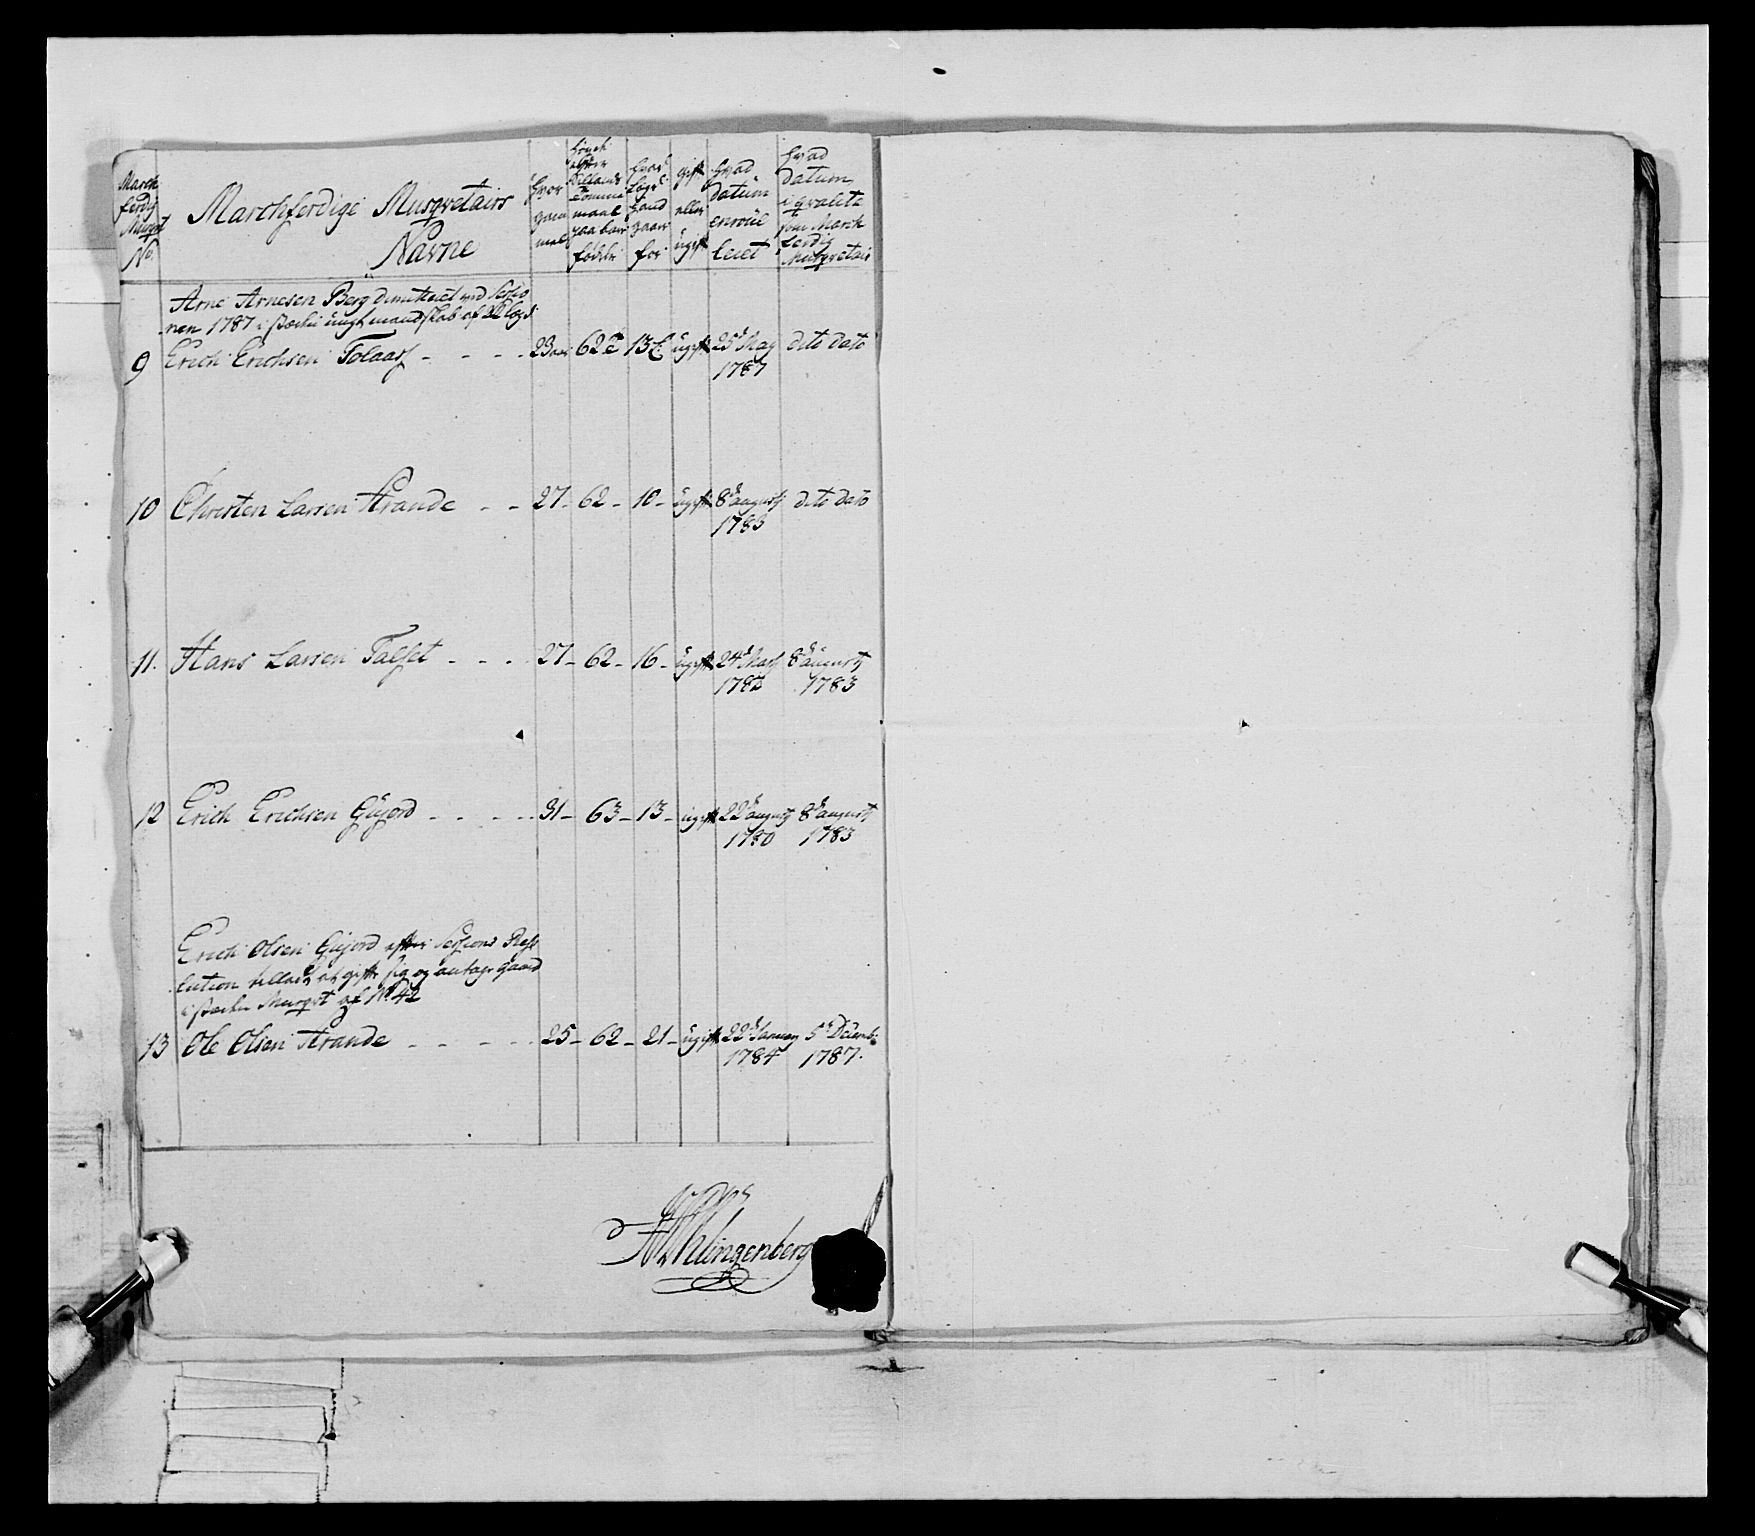 March
ferdig
Musqvt
No.
Marchferdige Musqvetairs
Navne
hvor
gam
mel
høyde
efter
Siellands
Tomme
maal
paa bare
fødder
hvad
Lægd
hand
gaar
for
gift
eller
ugift
hvad
datum
enroul
leret
hvad
datum
i qvalite
som March
ferdig
Musqvetair
Arne Arnesen Berg dimitteret ved Sessio
nen 1787 i stæden ungt mandskab af Lægd
9 Erich Erichsen Tolaas - - - - 23 aar 62 T 13 L ugift 25d May dito dato
1787
10 Christen Larsen Strande - - 27 - 62 - 10 - ugift 8d augusti dito dato
1783
11. Hans Larsen Talset - - - 27 - 62 - 16 - ugift 24d 8d augusti
1783
12 Erich Erichsen Gujord - - - - 31 - 63 - 13 - ugift 22d augusti 8d augusti
1780 1783
Erich Olsen Gujord efter Sessions Reso
lution tilladt at gifte sig og antage gaard
i stæden Musqvt af No 42
13 Ole Olsen Strande - - - - - 25 - 62 - 21 - ugift 22d January 5d Decemb
1784 1787.
Klingenberg